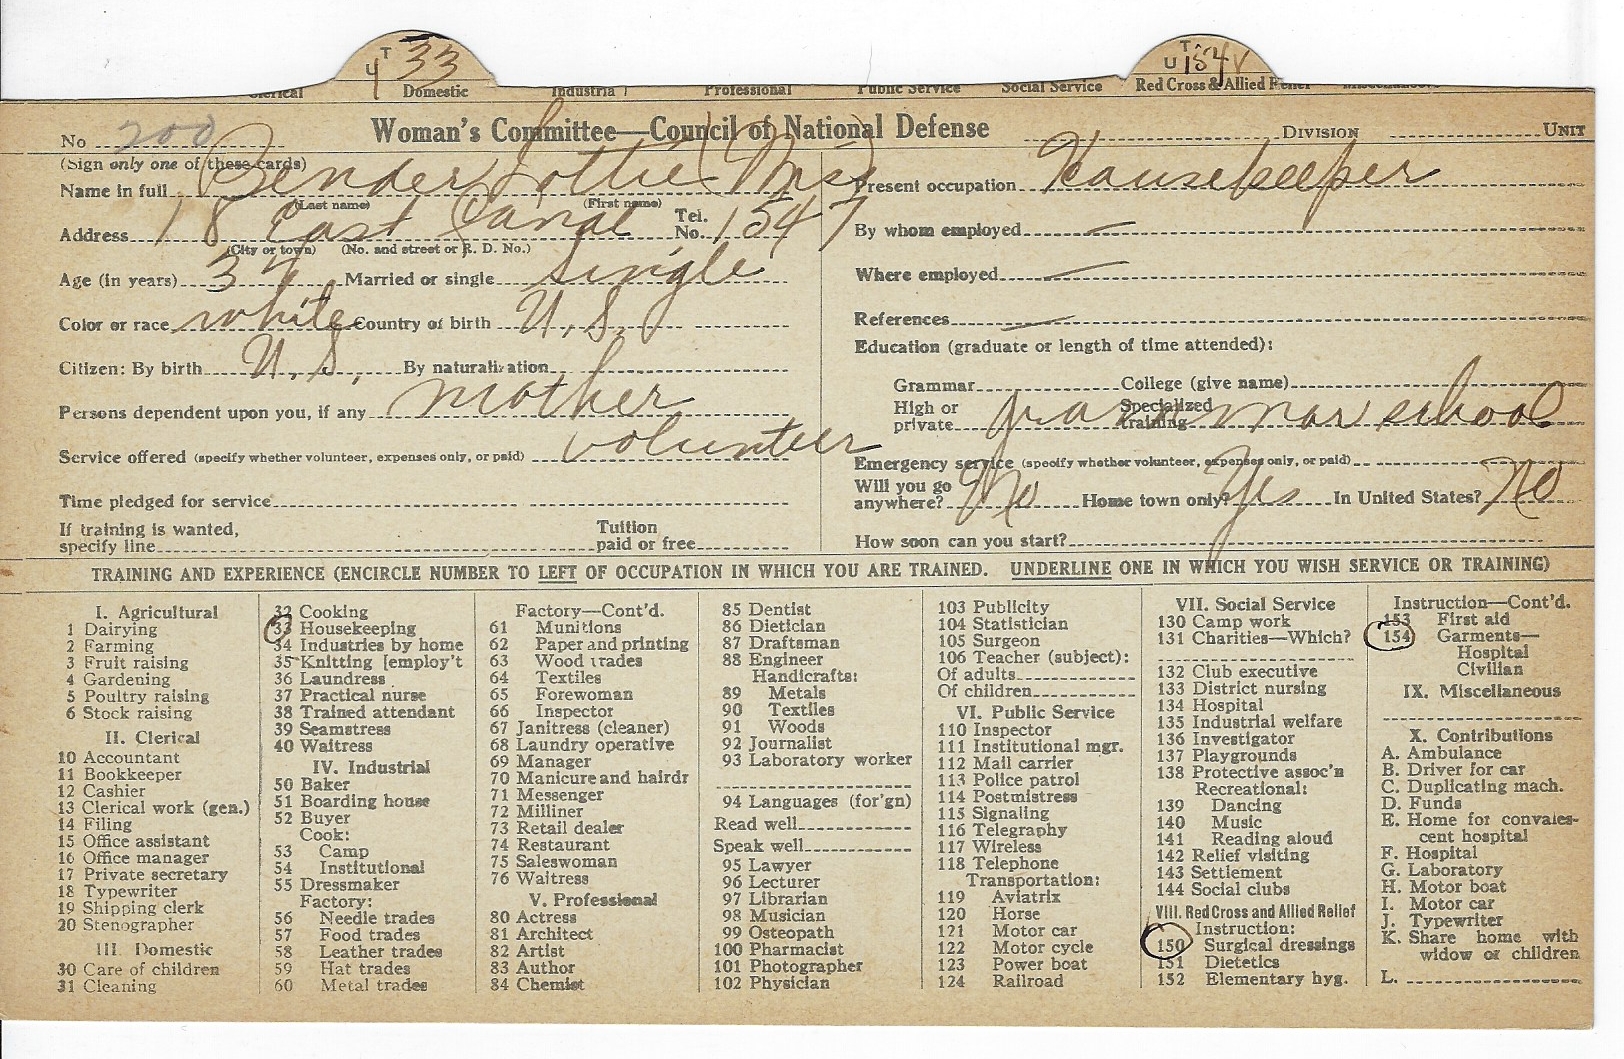 T
U 33
T
U 154
Clerical Domestic Industrial Professional Public Service Social Service Red Cross & Allied Relief Miscellaneous
No 200 Woman's Committee—Council of National Defense DIVISION UNIT
(Sign only one of these cards)
Name in full Bender Lottie (Miss)
(Last name) (First name)
Address 18 East Canal Tel. No. 1547
(City or town) (No. and street or R. D. No.)
Age (in years) 34 Married or single Single
Color or race white Country of birth U.S.
Citizen: By birth U.S. By naturalization
Persons dependent upon you, if any mother
Service offered (specify whether volunteer, expenses only, or paid) volunteer
Time pledged for service
If training is wanted,
specify line
Tuition
paid or free
Present occupation Housekeeper
By whom employed —
Where employed —
References —
Education (graduate or length of time attended):
Grammar College (give name)
High or
private
Specialized
training
grammar school
Emergency service (specify whether volunteer, expenses only, or paid)
Will you go
anywhere? No Home town only? Yes In United States? No
How soon can you start?
TRAINING AND EXPERIENCE (ENCIRCLE NUMBER TO LEFT OF OCCUPATION IN WHICH YOU ARE TRAINED. UNDERLINE ONE IN WHICH YOU WISH SERVICE OR TRAINING)
I. Agricultural
1 Dairying
2 Farming
3 Fruit raising
4 Gardening
5 Poultry raising
6 Stock raising
II. Clerical
10 Accountant
11 Bookkeeper
12 Cashier
13 Clerical work (gen.)
14 Filing
15 Office assistant
16 Office manager
17 Private secretary
18 Typewriter
19 Shipping clerk
20 Stenographer
III. Domestic
30 Care of children
31 Cleaning
32 Cooking
33 Housekeeping
34 Industries by home
35 Knitting [employ't
36 Laundress
37 Practical nurse
38 Trained attendant
39 Seamstress
40 Waitress
IV. Industrial
50 Baker
51 Boarding house
52 Buyer
Cook:
53 Camp
54 Institutional
55 Dressmaker
Factory:
56 Needle trades
57 Food trades
58 Leather trades
59 Hat trades
60 Metal trades
Factory—Cont'd.
61 Munitions
62 Paper and printing
63 Wood trades
64 Textiles
65 Forewoman
66 Inspector
67 Janitress (cleaner)
68 Laundry operative
69 Manager
70 Manicure and hairdr
71 Messenger
72 Milliner
73 Retail dealer
74 Restaurant
75 Saleswoman
76 Waitress
V. Professional
80 Actress
81 Architect
82 Artist
83 Author
84 Chemist
85 Dentist
86 Dietician
87 Draftsman
88 Engineer
Handicrafts:
89 Metals
90 Textiles
91 Woods
92 Journalist
93 Laboratory worker
94 Languages (for'gn)
Read well
Speak well
95 Lawyer
96 Lecturer
97 Librarian
98 Musician
99 Osteopath
100 Pharmacist
101 Photographer
102 Physician
103 Publicity
104 Statistician
105 Surgeon
106 Teacher (subject):
Of adults
Of children
VI. Public Service
110 Inspector
111 Institutional mgr.
112 Mail carrier
113 Police patrol
114 Postmistress
115 Signaling
116 Telegraphy
117 Wireless
118 Telephone
Transportation:
119 Aviatrix
120 Horse
121 Motor car
122 Motor cycle
123 Power boat
124 Railroad
VII. Social Service
130 Camp work
131 Charities—Which?
132 Club executive
133 District nursing
134 Hospital
135 Industrial welfare
136 Investigator
137 Playgrounds
138 Protective assoc'n
Recreational:
139 Dancing
140 Music
141 Reading aloud
142 Relief visiting
143 Settlement
144 Social clubs
VIII. Red Cross and Allied Relief
Instruction:
150 Surgical dressings
151 Dietetics
152 Elementary hyg.
Instruction—Cont'd.
153 First aid
154 Garments—
Hospital
Civilian
IX. Miscellaneous
X. Contributions
A. Ambulance
B. Driver for car
C. Duplicating mach.
D. Funds
E. Home for convales-
cent hospital
F. Hospital
G. Laboratory
H. Motor boat
I. Motor car
J. Typewriter
K. Share home with
widow or children
L.